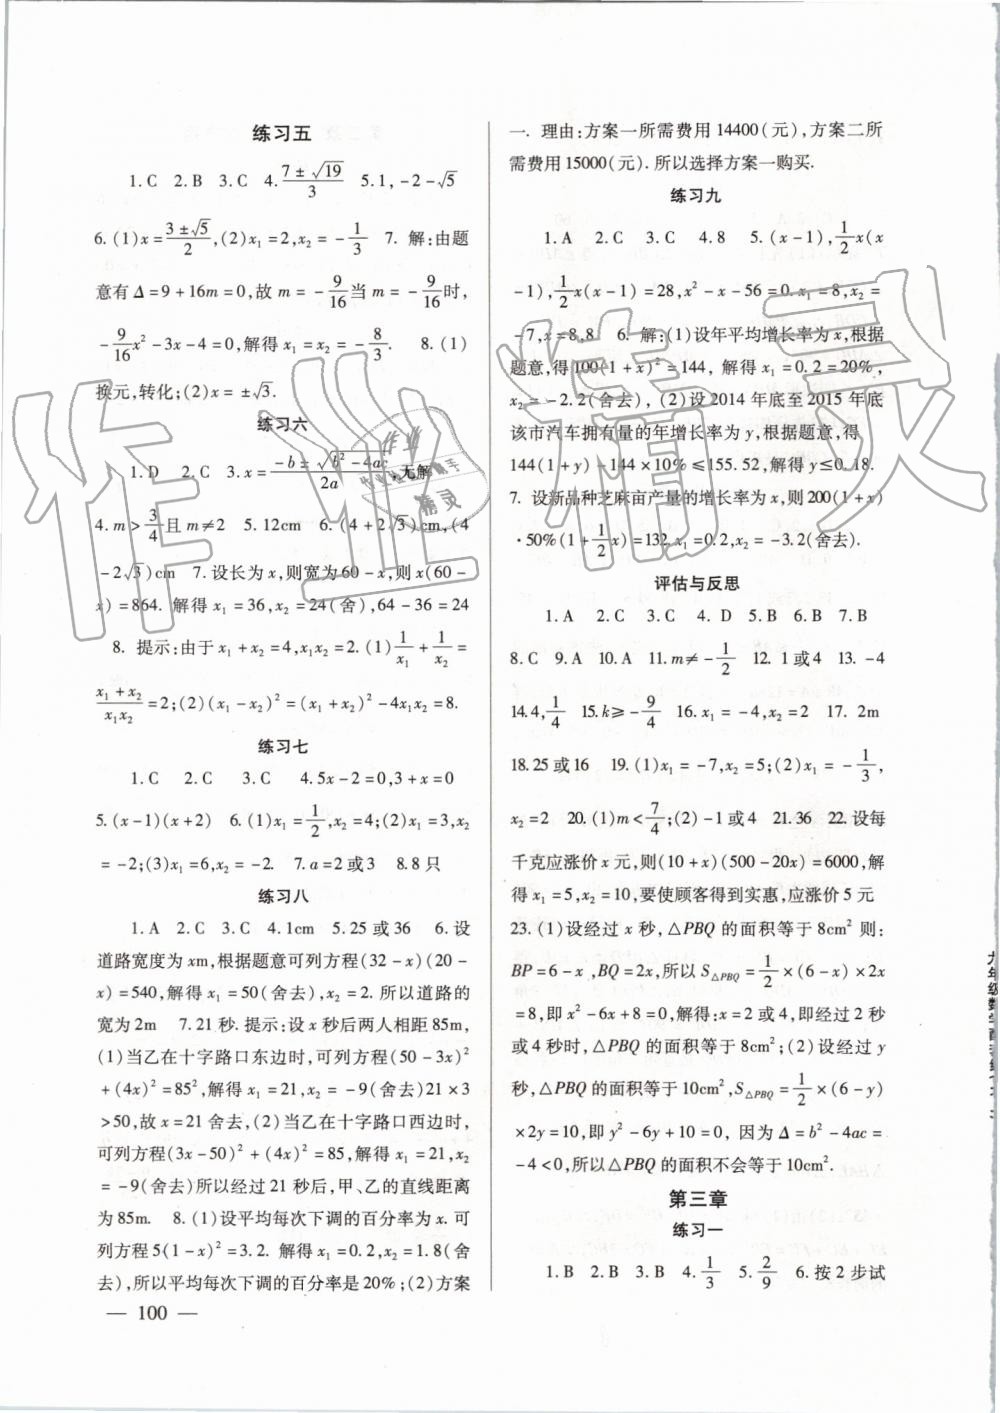 练习五
1.C 2.B 3.C 4.(7±√19)/3 5.1,-2-√5
6.(1)x=(3±√5)/2,(2)x₁=2,x₂=-1/3 7. 解:由题
意有Δ=9+16m=0,故 m=-9/16当 m=-9/16时,
-9/16x²-3x-4=0,解得 x₁=x₂=-8/3. 8.(1)
换元,转化;(2)x=±√3.
练习六
1.D 2.C 3.x=(-b±√(b²-4ac))/2a,无解
4.m>3/4且 m≠2 5.12cm 6.(4+2√3)cm,(4
-2√3)cm 7.设长为x,则宽为60-x,则x(60-
x)=864. 解得 x₁=36,x₂=24(舍),64-36=24
8. 提示:由于 x₁+x₂=4,x₁x₂=2.(1)1/x₁+1/x₂=
(x₁+x₂)/x₁x₂=2;(2)(x₁-x₂)²=(x₁+x₂)²-4x₁x₂=8.
练习七
1.C 2.C 3.C 4.5x-2=0,3+x=0
5.(x-1)(x+2) 6.(1)x₁=1/2,x₂=4;(2)x₁=3,x₂
=-2;(3)x₁=6,x₂=-2. 7.a=2或3 8.8只
练习八
1.A 2.C 3.C 4.1cm 5.25或36 6.设
道路宽度为xm,根据题意可列方程(32-x)(20-
x)=540,解得 x₁=50(舍去),x₂=2. 所以道路的
宽为2m 7.21秒. 提示:设 x 秒后两人相距85m,
(1)当乙在十字路口东边时,可列方程(50-3x)²
+(4x)²=85²,解得 x₁=21,x₂=-9(舍去)21×3
>50,故 x=21舍去,(2)当乙在十字路口西边时,
可列方程(3x-50)²+(4x)²=85,解得 x₁=21,x₂
=-9(舍去)所以经过21秒后,甲、乙的直线距离
为85m. 8.(1)设平均每次下调的百分率为x.可
列方程5(1-x)²=3.2. 解得 x₁=0.2,x₂=1.8(舍
去),所以平均每次下调的百分率是20%;(2)方案
— 100 —
一. 理由:方案一所需费用14400(元),方案二所
需费用15000(元).所以选择方案一购买.
练习九
1.A 2.C 3.C 4.8 5.(x-1),1/2x(x
-1),1/2x(x-1)=28,x²-x-56=0.x₁=8,x₂=
-7,x=8,8 6. 解:(1)设年平均增长率为x,根据
题意,得100(1+x)²=144,解得 x₁=0.2=20%,
x₂=-2.2(舍去),(2)设2014年底至2015年底
该市汽车拥有量的年增长率为y,根据题意,得
144(1+y)-144×10%≤155.52,解得 y≤0.18.
7. 设新品种芝麻亩产量的增长率为x,则200(1+x)
·50%(1+1/2x)=132.x₁=0.2,x₂=-3.2(舍去).
评估与反思
1.A 2.C 3.C 4.D 5.B 6.B 7.B
8.C 9.A 10.A 11.m≠-1/2 12.1或4 13.-4
14.4,1/4 15.k≥-9/4 16.x₁=-4,x₂=2 17.2m
18.25或16 19.(1)x₁=-7,x₂=5;(2)x₁=-1/3,
x₂=2 20.(1)m<7/4;(2)-1或4 21.36 22.设每
千克应涨价x元,则(10+x)(500-20x)=6000,解
得 x₁=5,x₂=10,要使顾客得到实惠,应涨价5元
23.(1)设经过x秒,△PBQ的面积等于8cm²则:
BP=6-x,BQ=2x,所以S△PBQ=1/2×(6-x)×2x
=8,即x²-6x+8=0,解得:x=2或4,即经过2秒
或4秒时,△PBQ的面积等于8cm²;(2)设经过y
秒,△PBQ的面积等于10cm²,S△PBQ=1/2×(6-y)
×2y=10,即y²-6y+10=0,因为Δ=b²-4ac=
-4<0,所以△PBQ的面积不会等于10cm².
第三章
练习一
1.B 2.B 3.B 4.1/3 5.2/9 6.按2步试
作业精灵
作业
精灵
九年级数学